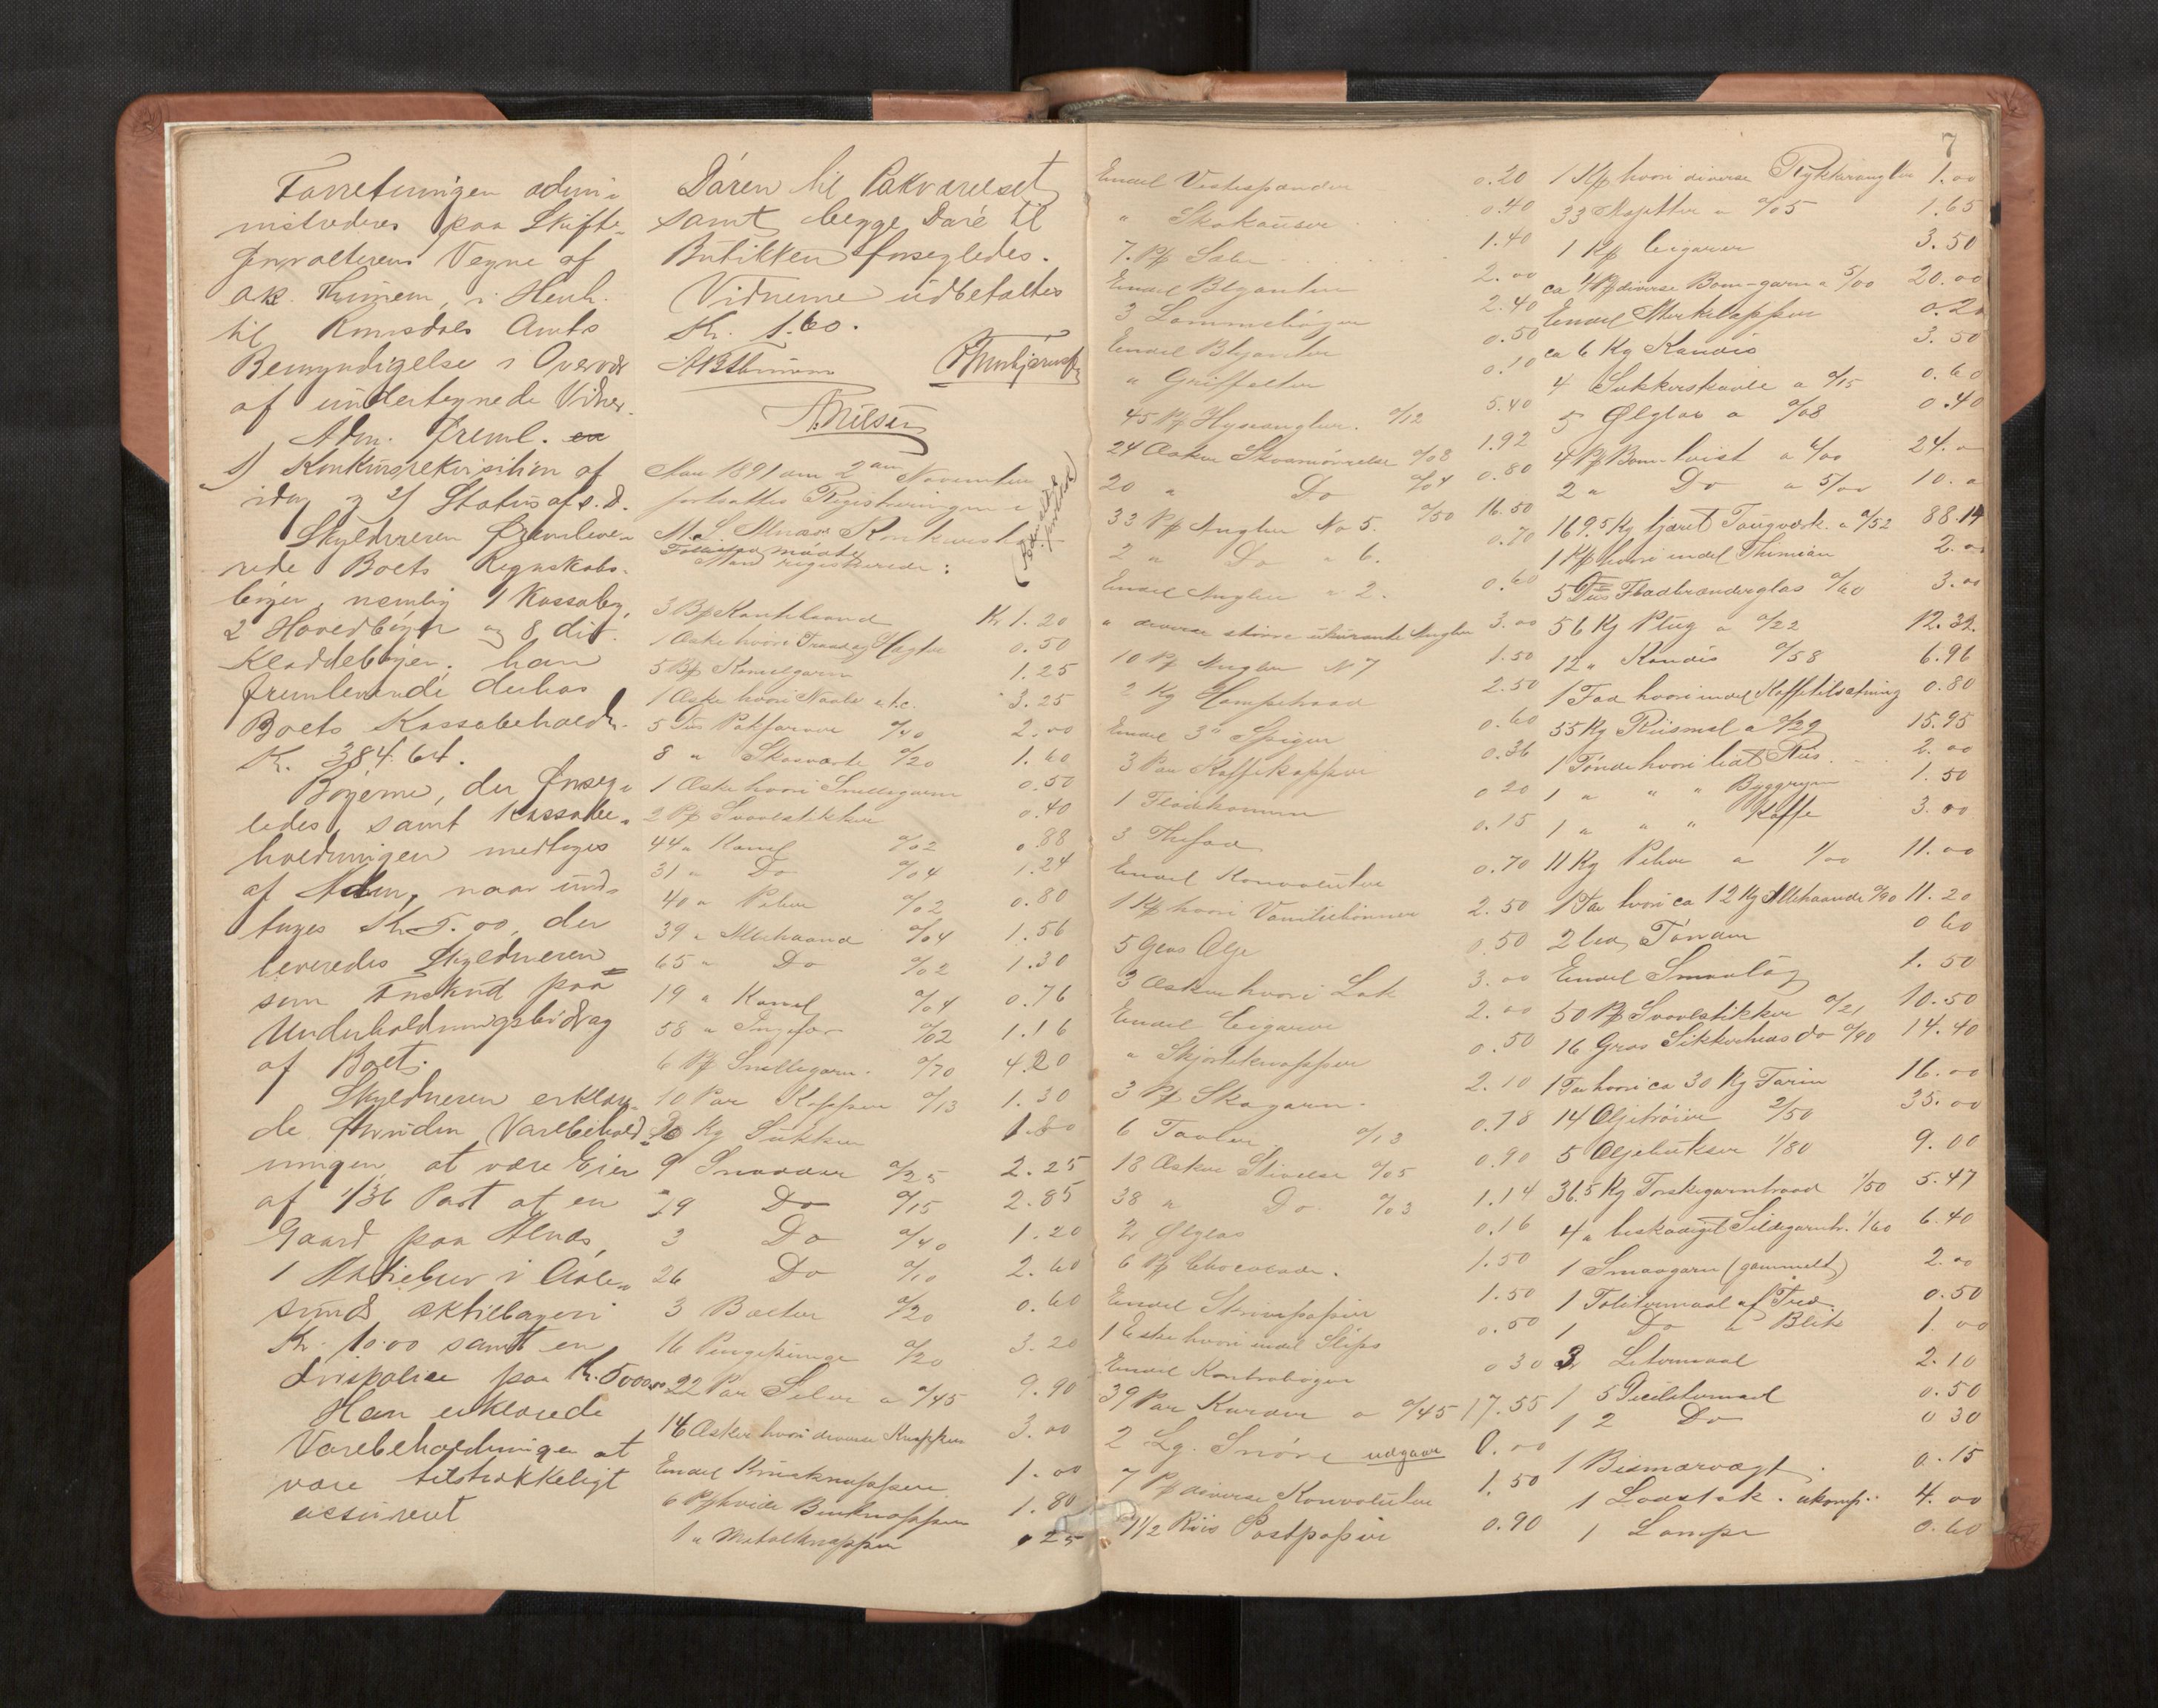 Forretningen admi-
nistreredes paa Skifte-
forvalterens Vegne af
A.K. Thinnem, i Henh.
til Romsdals Amts
Bemyndigelse i Overvær
af undertegnede Vidner.
Adm. freml. en
1) Konkursrekvisition af
idag og 2) Status af s. D.
Skyldneren fremleve-
rede Boets Regnskabs-
bøger, nemlig 1 Kassabog,
2 Hovedbøger og 8 dit.
Kladdebøger. han
fremleverede derhos
Boets Kassabeholdn.
Kr. 384.64.
Bøgerne, der forseg-
ledes, samt Kassabe-
holdningen medtoges
af Adm., naar und-
tages Kr 5.00, der
leveredes Skyldneren
som Forskud paa
Underholdningsbidrag
af Boet.
Skyldneren erklær-
de foruden Varebehold-
ningen at være Eier
af 1/36 Part at en
Gaard paa Alnæs,
1 Aktiebrev i Aale-
sunds aktiebryggeri
Kr. 10.00 samt en
Livspolice paa Kr. 5000.00
Han erklærede
Varebeholdningen at
være tilstrækkeligt
assureret
Døren til Pakværelset
samt begge Døre til
Butikken forsegledes.
Vidnerne udbetaltes
Kr. 1.60.
AKThinnem
A. Nilsen
Aar 1891 den 2den November
fortsattes Registreringen i
M. S. Alnæs Konkursbo
Følgelig maatte
Man registrerede:
3 Bp Kantebaand Kr 1.20
1 Æske hvori Traad og Hagter 0.50
5 Bp Kamelgarn 1.25
1 Æske hvori Naale etc. 3.25
5 Dus Pakfarver 0/40 2.00
8 " Skosværte 0/20 1.60
1 Æske hvori Snellegarn 0.50
2 Pk Svovlstikker 0.40
44 " Kanel 0/02 0.88
31 " Do 0/04 1.24
40 " Peber 0/02 0.80
39 " Allehaande 0/04 1.56
65 " Do 0/02 1.30
19 " Kanel 0/04 0.76
58 " Ingefær 0/02 1.16
6 Pk Snellegarn 0/70 4.20
10 Par Kopper 0/13 1.30
Kg Sukker 1.80
9 Snadder 0/25 2.25
19 Do 0/15 2.85
3 Do 0/40 1.20
26 Do 0/10 2.60
3 Bælter 0/20 0.60
16 Pengepunge 0/20 3.20
22 Par Seler a 0/45 9.90
14 Æsker hvori diverse Knapper 3.00
Endel Buxeknapper 1.00
6 Pk hvide Benknapper 1.80
1 " Metalknapper 0.25
7
Endel Vestespænder 0.20
" Skokauser 0.40
7 Pk Sæbe 1.40
Endel Blyanter 2.00
3 Lommebøger 2.40
Endel Blyanter 0.50
" Griffelter 0.10
45 Pk Hyseangler 0/12 5.40
24 Æsker Skosmørrelse 0/08 1.92
20 " Do 0/04 0.80
33 Pk Angler No 5. 0/50 16.50
2 " Do " 6. 0.70
Endel Angler " 2. 0.60
" diverse større ukurante Angler 3.00
10 Pk Angler N 7 1.50
2 Kg Hampetraad 2.50
Endel 3" Spiger 0.60
3 Par Kaffekopper 0.36
1 Flødekumme 0.20
3 Thefad 0.15
Endel Konvolutter 0.70
1 Kp hvori Vanillebønner 2.50
5 Glas Olje 0.50
3 Æsker hvori Lak 3.00
Endel Cigarer 2.00
" Skjorteknapper 0.50
3 Pk Skogarn 2.10
6 Tavler 0/13 0.78
18 Æsker Stivelse 0/05 0.90
38 " Do 0/03 1.14
2 Ølglas 0.16
6 Pk Chocolade 1.50
Endel Skrivepapir 1.50
1 Eske hvori endel Slips 0.50
Endel Kontrabøger 0.30
39 Par Karder a 0/45 17.55
2 Lg. Snøre udgaar 0.00
7 Pk diverse Konvolutter 1.50
1 1/2 Riis Postpapir 0.90
1 Kp hvori diverse Rykkerangler 1.00
33 a 0/05 1.65
1 Kp Cigarer 3.50
ca 4 Bp diverse Bom-garn a 5/00 20.00
Endel Merkelapper 0.20
ca 6 Kg Kandis 3.50
4 Sukkerskaale a 0/15 0.60
5 Ølglas a 0/08 0.40
4 Bp Bom-tvist a 6/00 24.00
2 " Do a 5/00 10.00
169.5 Kg tjæret Tougværk a 0/52 88.14
1 Kp hvori endel Thimian 2.00
5 Dus Fladbrænderglas 0/60 3.00
56 Kg Plug a 0/22 12.32
12 " Kandis 0/58 6.96
1 Fad hvori endel Kaffetilsætning 0.80
55 Kg Riismel a 0/29 15.95
1 Tønde hvori lidt Riis 2.00
1 " " " Byggryn 1.50
1 " " " Kaffe 3.00
11 Kg Peber a 1/00 11.00
1 Fad hvori ca 12 Kg Allehaande 0/90 11.20
2 led. Tønder 0.60
Endel Smaatøj 1.50
50 Pk Svovlstikker 0/21 10.50
16 Gros Sikkerheds do 0/90 14.40
1 Fad hvori ca 30 Kg Farin 16.00
14 Oljetrøier 2/50 35.00
5 Oljebukser 1/80 9.00
36.5 Kg Torskegarntraad 1/50 5.47
4 " beskadiget Sildegarntr. 1/60 6.40
1 Smaagarn (gammelt) 2.00
1 Tolitermaal af Træ 0.50
1 Do " Blik 1.00
3 Litermaal 2.10
1 5 Decilitermaal 0.50
1 2 Do 0.30
1 Bismærvægt 0.15
1 Lodstok ukompl. 4.00
1 Lampe 0.60